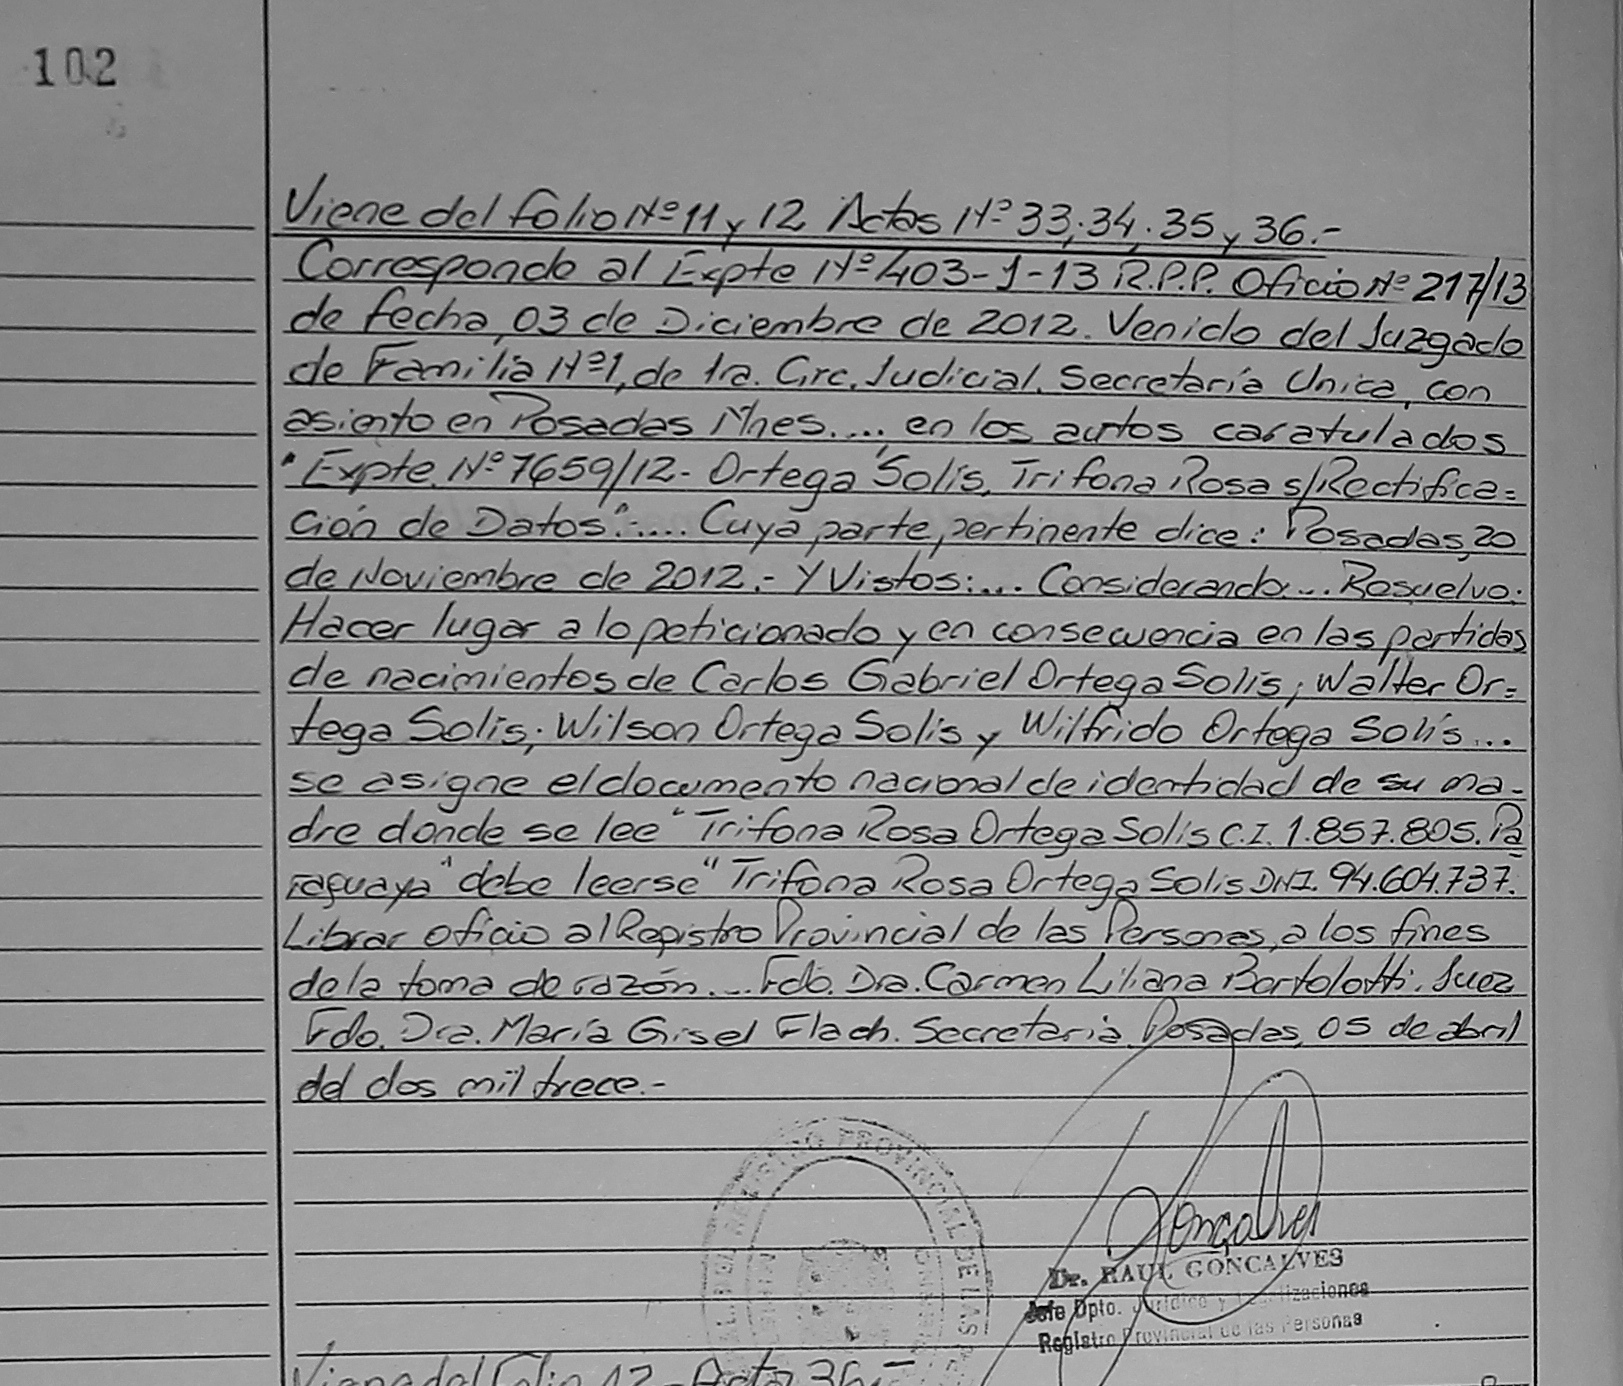 102
Viene del folio Nº 11 y 12 Actas Nº 33, 34, 35 y 36.-
Corresponde al Expte Nº 403-J-13 R.P.P. Oficio Nº 217/13
de fecha, 03 de Diciembre de 2012. Venido del Juzgado
de Familia Nº1, de 1ra. Circ. Judicial. Secretaría Unica, con
asiento en Posadas Mnes...., en los autos caratulados
"Expte. Nº 7659/12- Ortega Solís, Trifona Rosa s/Rectifica=
ción de Datos".... Cuya parte pertinente dice: Posadas, 20
de Noviembre de 2012.- Y Vistos:... Considerando:... Resuelvo:
Hacer lugar a lo peticionado y en consecuencia en las partidas
de nacimientos de Carlos Gabriel Ortega Solís; Walter Or=
tega Solis; Wilson Ortega Solis y Wilfrido Ortega Solís...
se asigne el documento nacional de identidad de su ma-
dre donde se lee "Trifona Rosa Ortega Solis C.I. 1.857.805. Pa
raguaya" debe leerse "Trifona Rosa Ortega Solis DNI. 94.604.737."
Librar oficio al Registro Provincial de las Personas, a los fines
de la toma de razón.... Fdo. Dra. Carmen Liliana Bortolotti. Juez
Fdo. Dra. María Gisel Flach. Secretaria. Posadas, 05 de abril
del dos mil trece.-
REGISTRO PROVINCIAL DE LAS
Goncalves
Dr. RAUL GONCALVES
Jefe Dpto. Jurídico y Legalizaciones
Registro Provincial de las Personas
Viene del Folio 12 - Acta 36.-